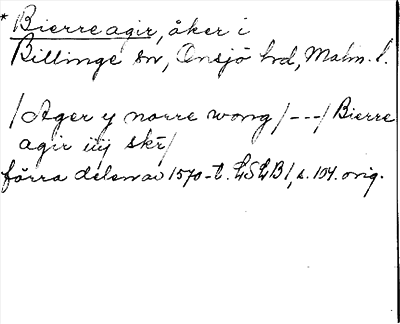 * Bierre agir, åker i
Billinge sn, Onsjö hd, Malm. l.
/Ager y norre wong/---/Bierre
agir iiij skr/
förra delen av 1570-t. LSLB 1, s. 104. orig.